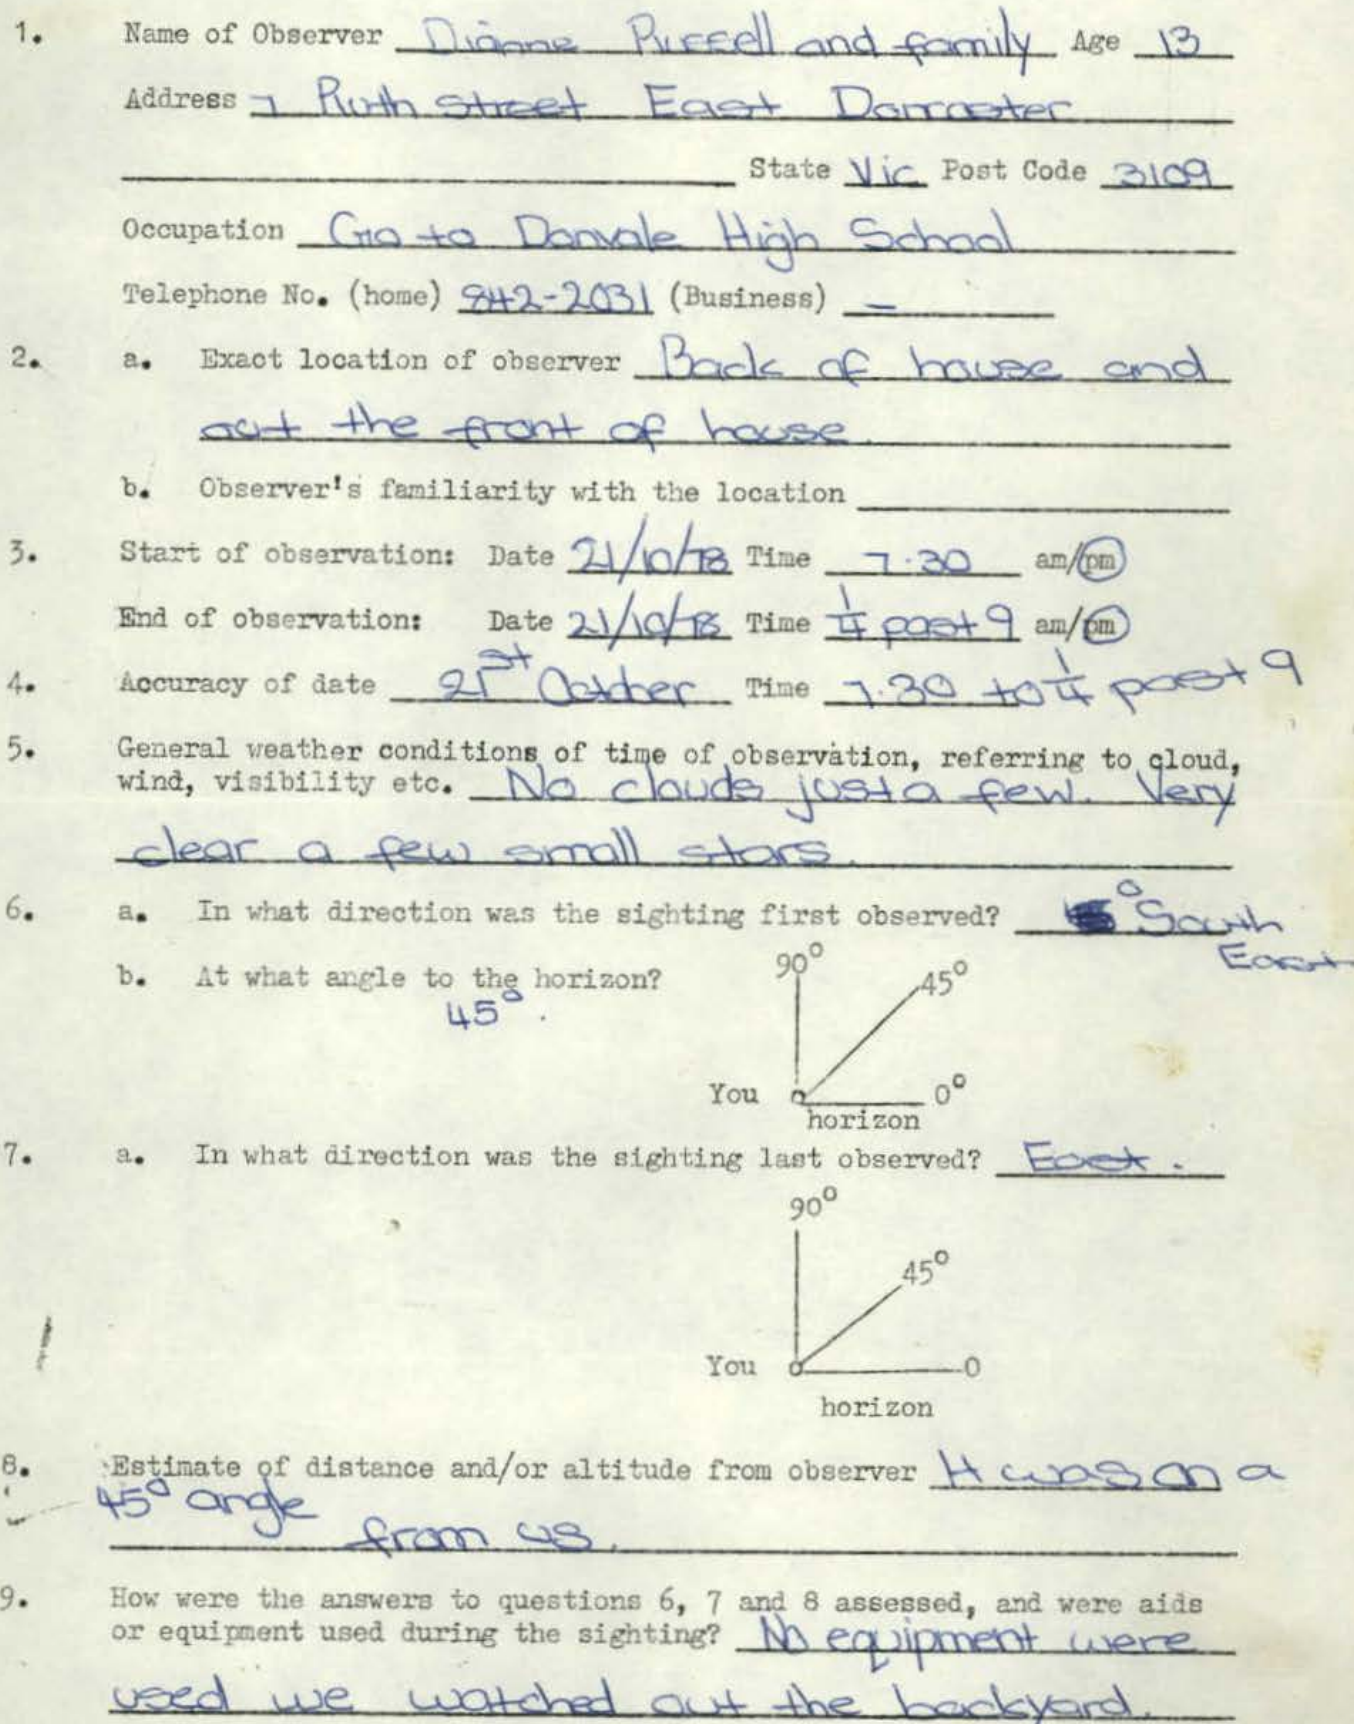 1. Name of Observer Dianne Russell and family Age 13
Address 7 Ruth Street East Doncaster
State Vic Post Code 3109
Occupation Go to Donvale High School
Telephone No. (home) 842-2031 (Business) —
2. a. Exact location of observer Back of house and
out the front of house.
b. Observer's familiarity with the location
3. Start of observation: Date 21/10/78 Time 7.30 am/pm
End of observation: Date 21/10/78 Time 1/4 past 9 am/pm
4. Accuracy of date 21st October Time 7.30 to 1/4 past 9
5. General weather conditions of time of observation, referring to cloud,
wind, visibility etc. No clouds just a few. Very
clear a few small stars.
6. a. In what direction was the sighting first observed? South
East
b. At what angle to the horizon?
45°.
90°
45°
You 0°
horizon
7. a. In what direction was the sighting last observed? East.
90°
45°
You 0
horizon
8. Estimate of distance and/or altitude from observer It was on a
45° angle
from us.
9. How were the answers to questions 6, 7 and 8 assessed, and were aids
or equipment used during the sighting? No equipment were
used we watched out the backyard.